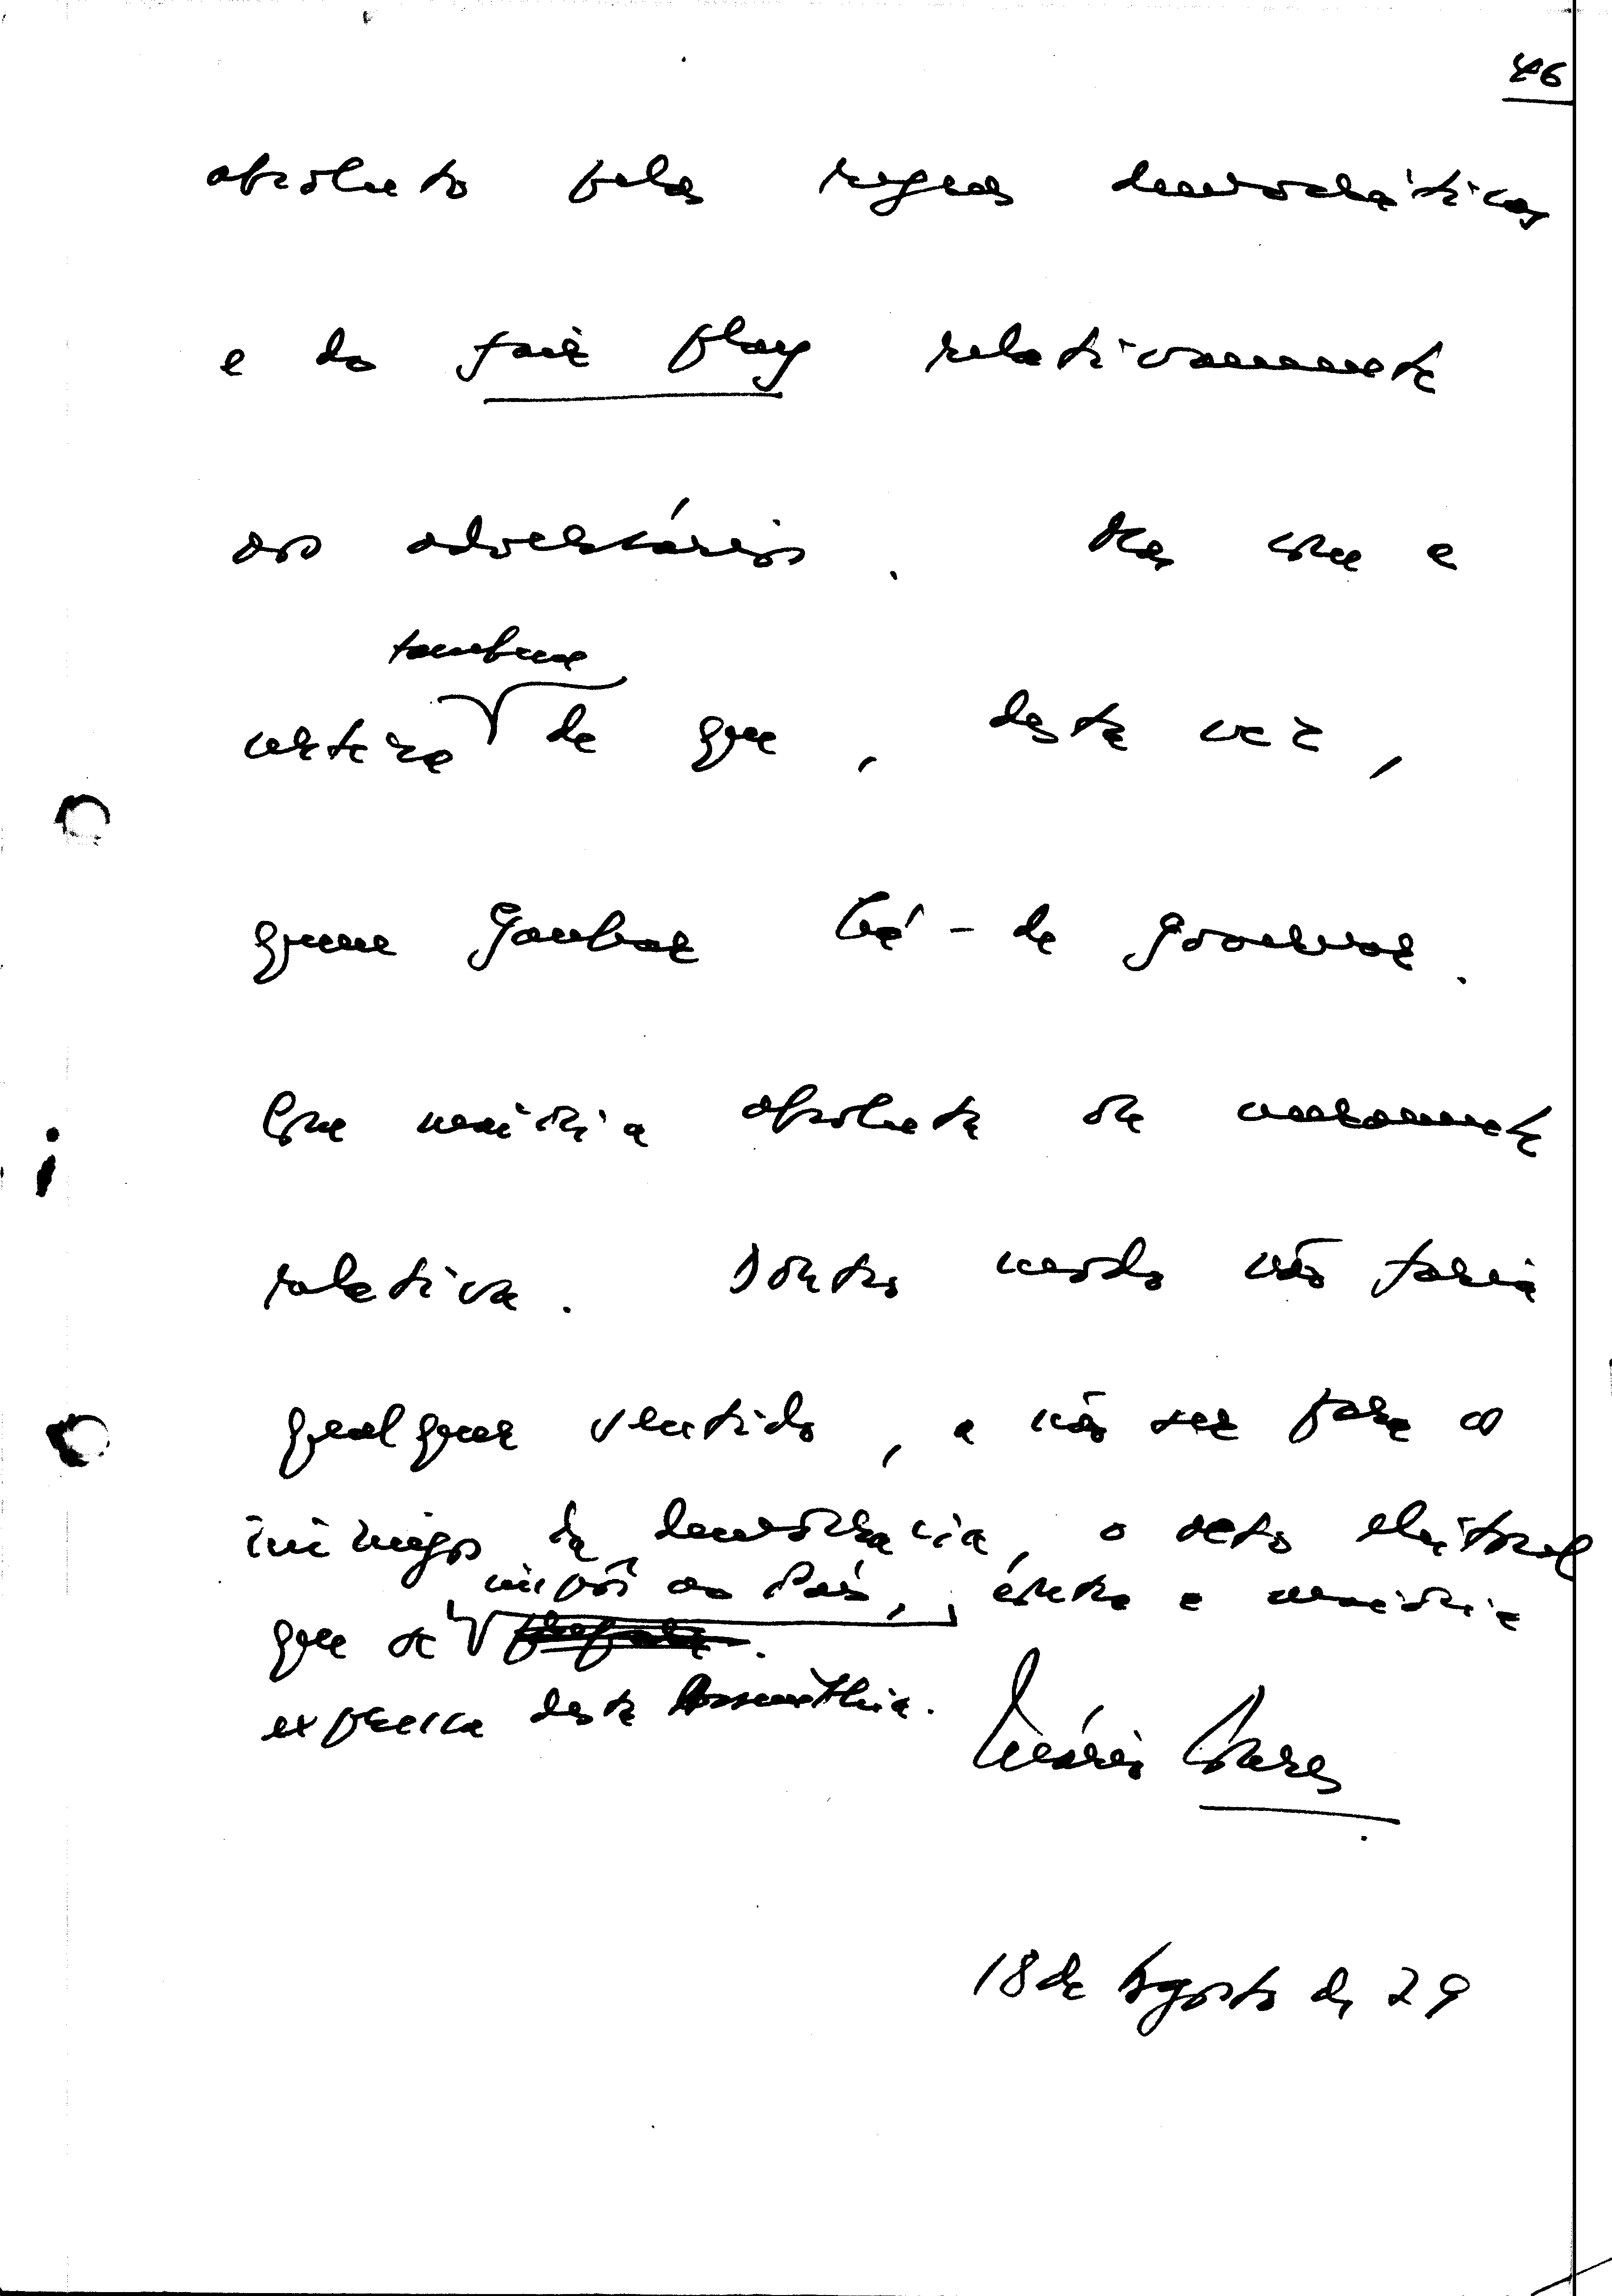 46
absoluto pelas regras democráticas
e do fair play relativamente
aos adversários. Mas com a
também
certeza de que, desta vez,
quem ganhar há-de governar.
Com maioria absoluta ou meramente
relativa. Doutro modo não faria
qualquer sentido, a não ser para os
inimigos da democracia, o acto eleitoral
impôs ao País, contra a maioria
que se
expressa desta Assembleia.
Mário Soares
18 de Agosto de 79